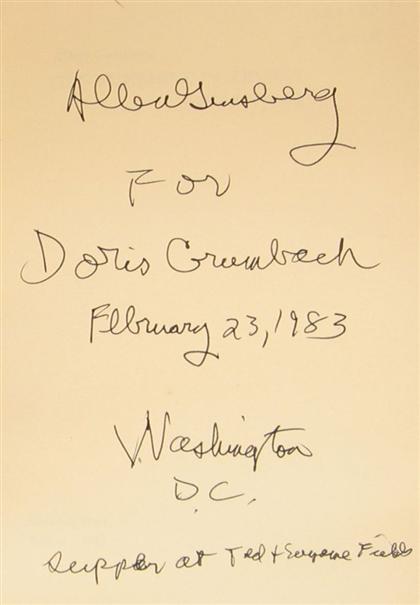 Allen Ginsberg
For
Doris Grumbach
February 23, 1983
Washington
D.C.
supper at Ted + Fields